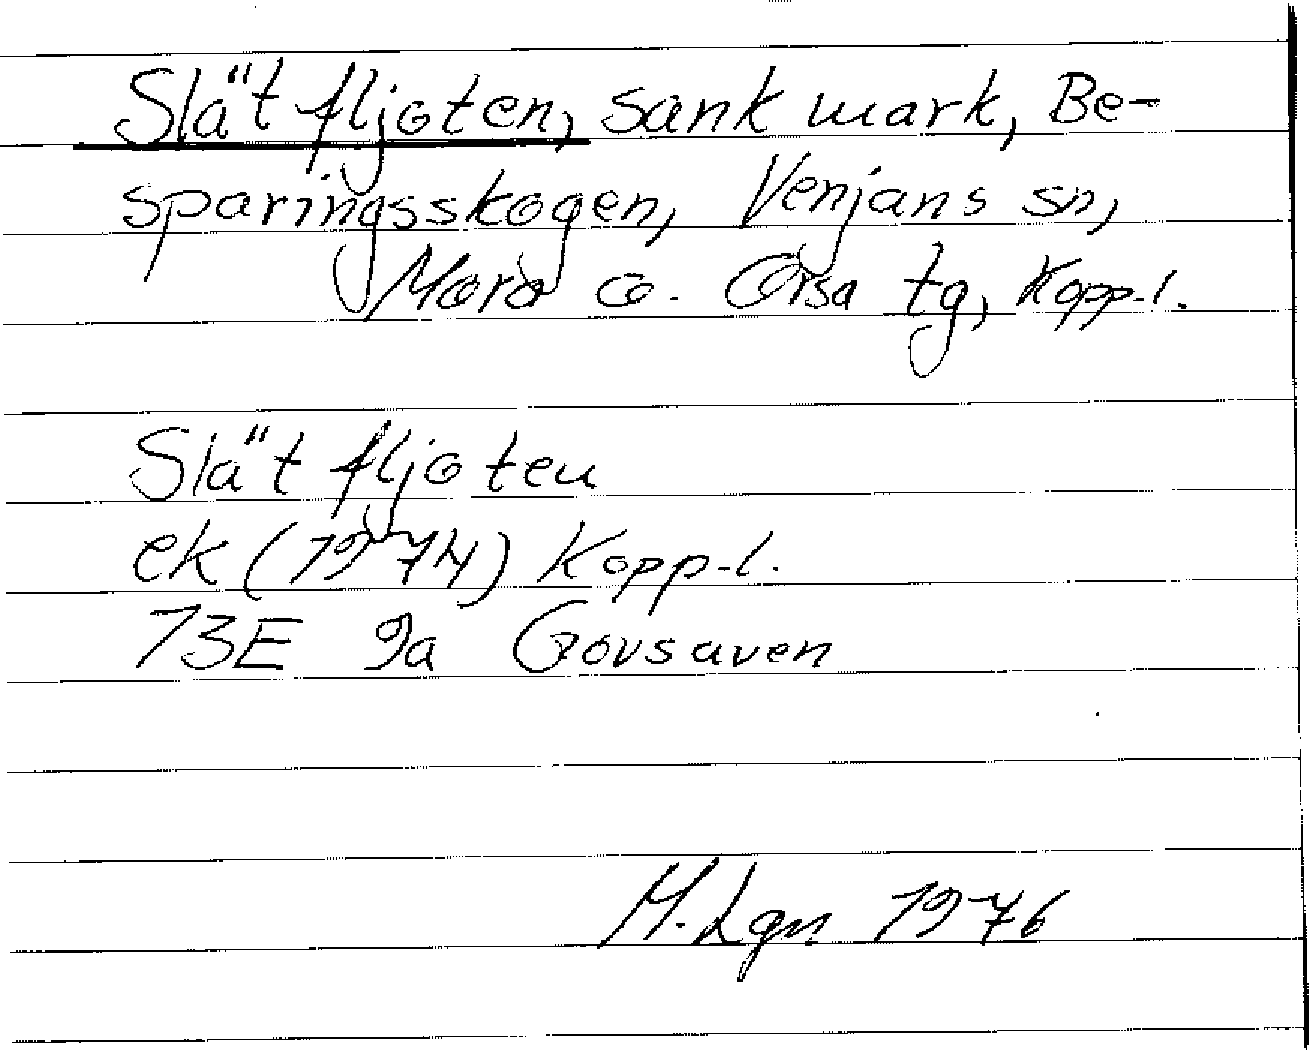 Slätfljoten, sank mark, Be-
sparingsskogen, Venjans sn,
Mora o. Orsa tg, Kopp.l.
Slätfljoten
ek (1974) Kopp-l.
13E 9a Govsaven
M. Lgn 1976